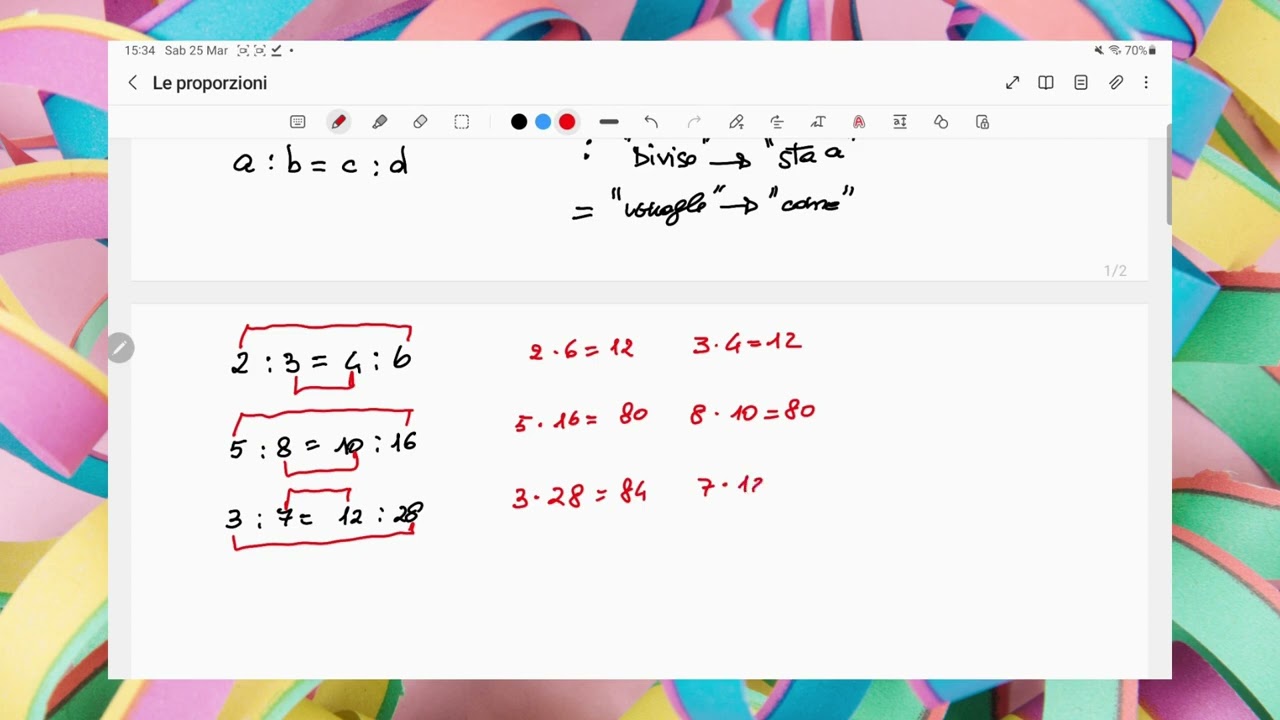 15:34 Sab 25 Mar 70%
Le proporzioni
a : b = c : d
: "Diviso" → "sta a"
= "uguale" → "come"
1/2
2 : 3 = 4 : 6 2 · 6 = 12 3 · 4 = 12
5 : 8 = 10 : 16 5 · 16 = 80 8 · 10 = 80
3 : 7 = 12 : 28 3 · 28 = 84 7 · 12